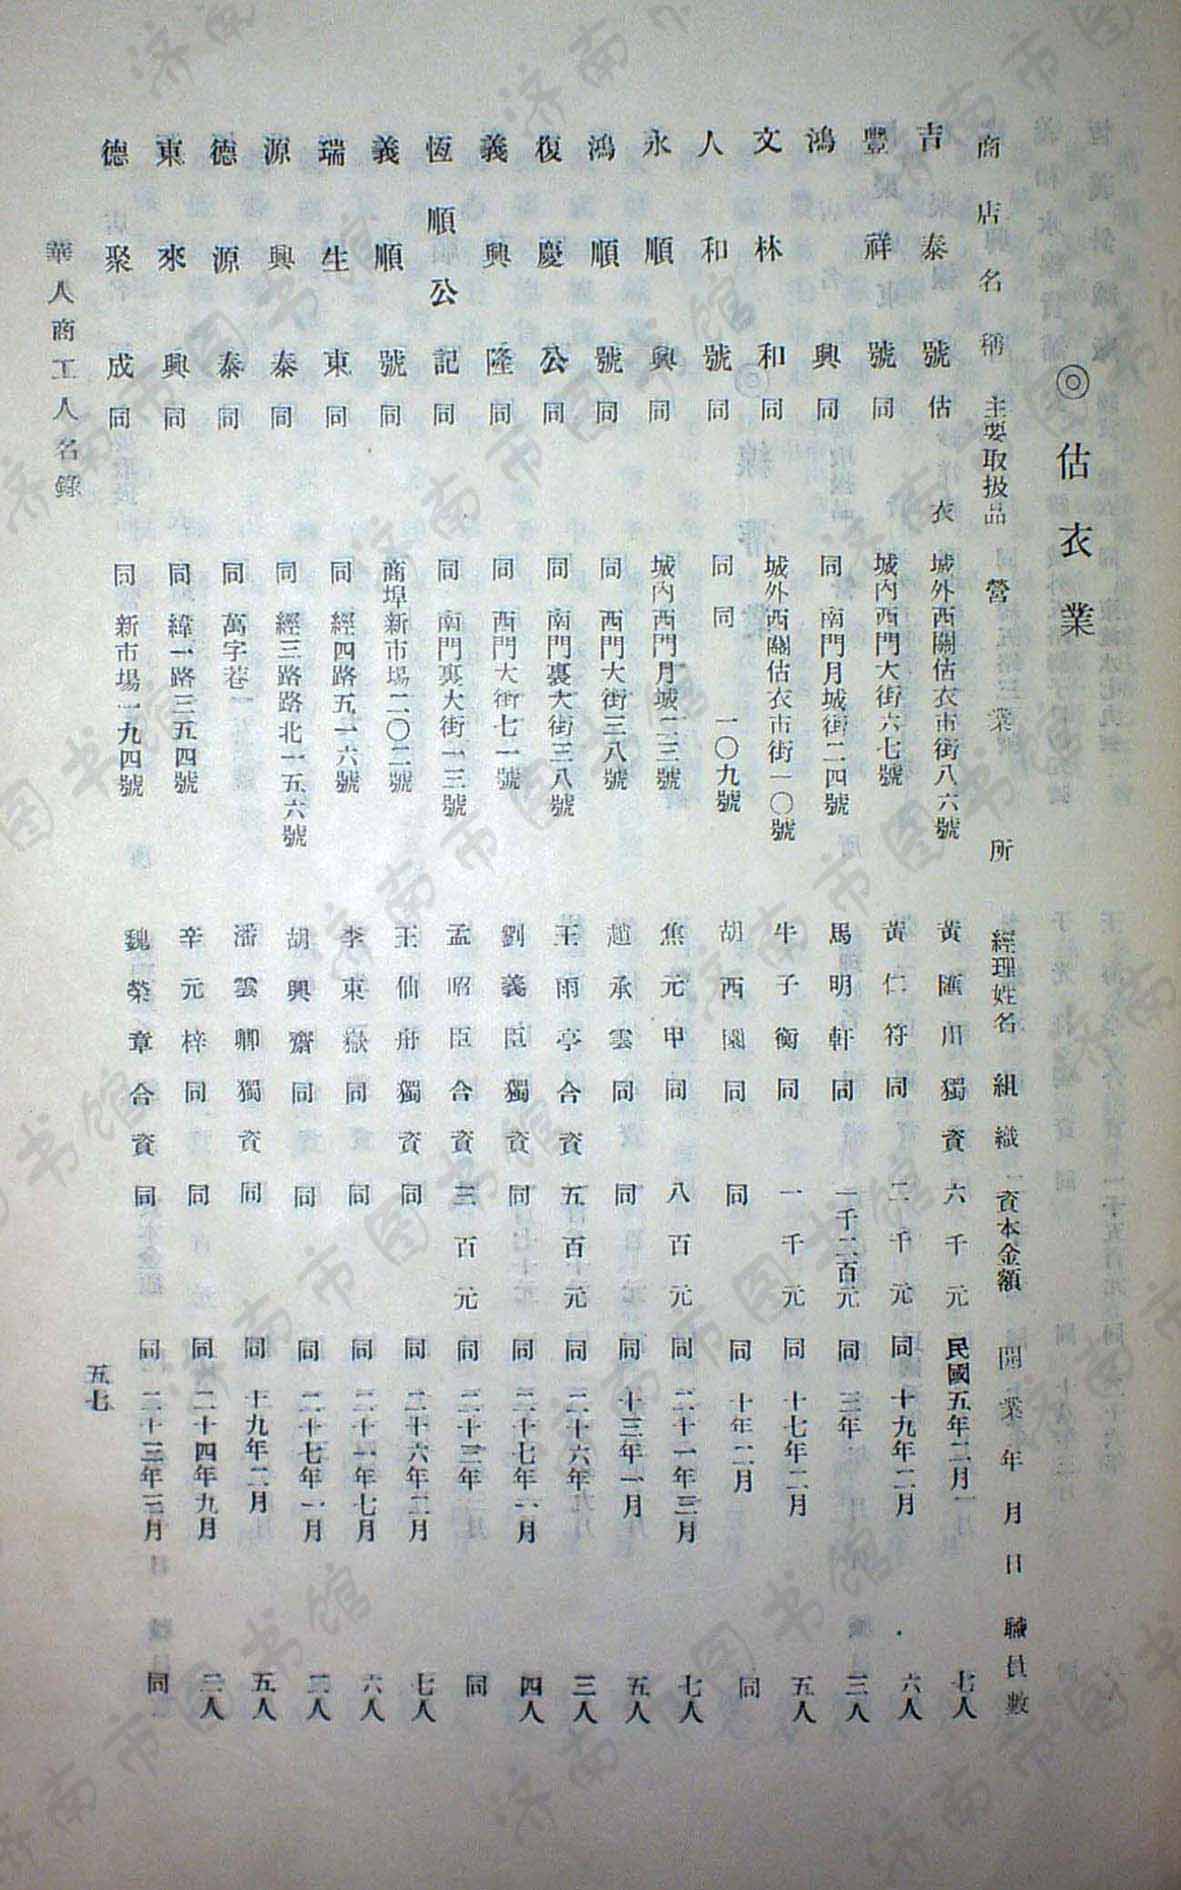 ◎估衣業
商店名稱 主要取扱品 營業所 經理姓名 組織 資本金額 開業年月日 職員數
吉泰號 估衣 城外西關估衣市街八六號 黃匯川 獨資 六千元 民國五年二月 七人
豐祥號 同 城內西門大街六七號 黃仁符 同 二千元 同十九年二月 六人
鴻興 同 同南門月城街二四號 馬明軒 同 一千二百元 同三年 三人
文林和 同 城外西關估衣市街一〇號 牛子衡 同 一千元 同十七年二月 五人
人和號 同 同同一〇九號 胡西園 同 同 同十年二月 同
永順興 同 城內西門月城二三號 焦元甲 同 八百元 同二十一年三月 七人
鴻順號 同 同西門大街三八號 趙承雲 同 同 同十三年一月 五人
復慶公 同 同南門裏大街三八號 王雨亭 合資 五百元 同二十六年 三人
義興隆 同 同西門大街七一號 劉義臣 獨資 同 同二十七年二月 四人
恆順公記 同 同南門裏大街一三號 孟昭臣 合資 三百元 同二十三年 同
義順號 同 商埠新市場二〇二號 王仙舟 獨資 同 同二十六年二月 七人
瑞生東 同 同經四路五一六號 李東嶽 同 同 同二十一年七月 六人
源興泰 同 同經三路路北一五六號 胡興齋 同 同 同二十七年一月 二人
德源泰 同 同萬字巷 潘雲卿 獨資 同 同十九年二月 五人
東來興 同 同緯一路三五四號 辛元梓 同 同 同二十四年九月 二人
德聚成 同 同新市場一九四號 魏榮章 合資 同 同二十三年三月 同
華人商工人名錄
五七
济南市图书馆